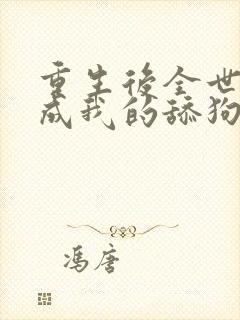 重生後全世
成我的舔狗
冯唐